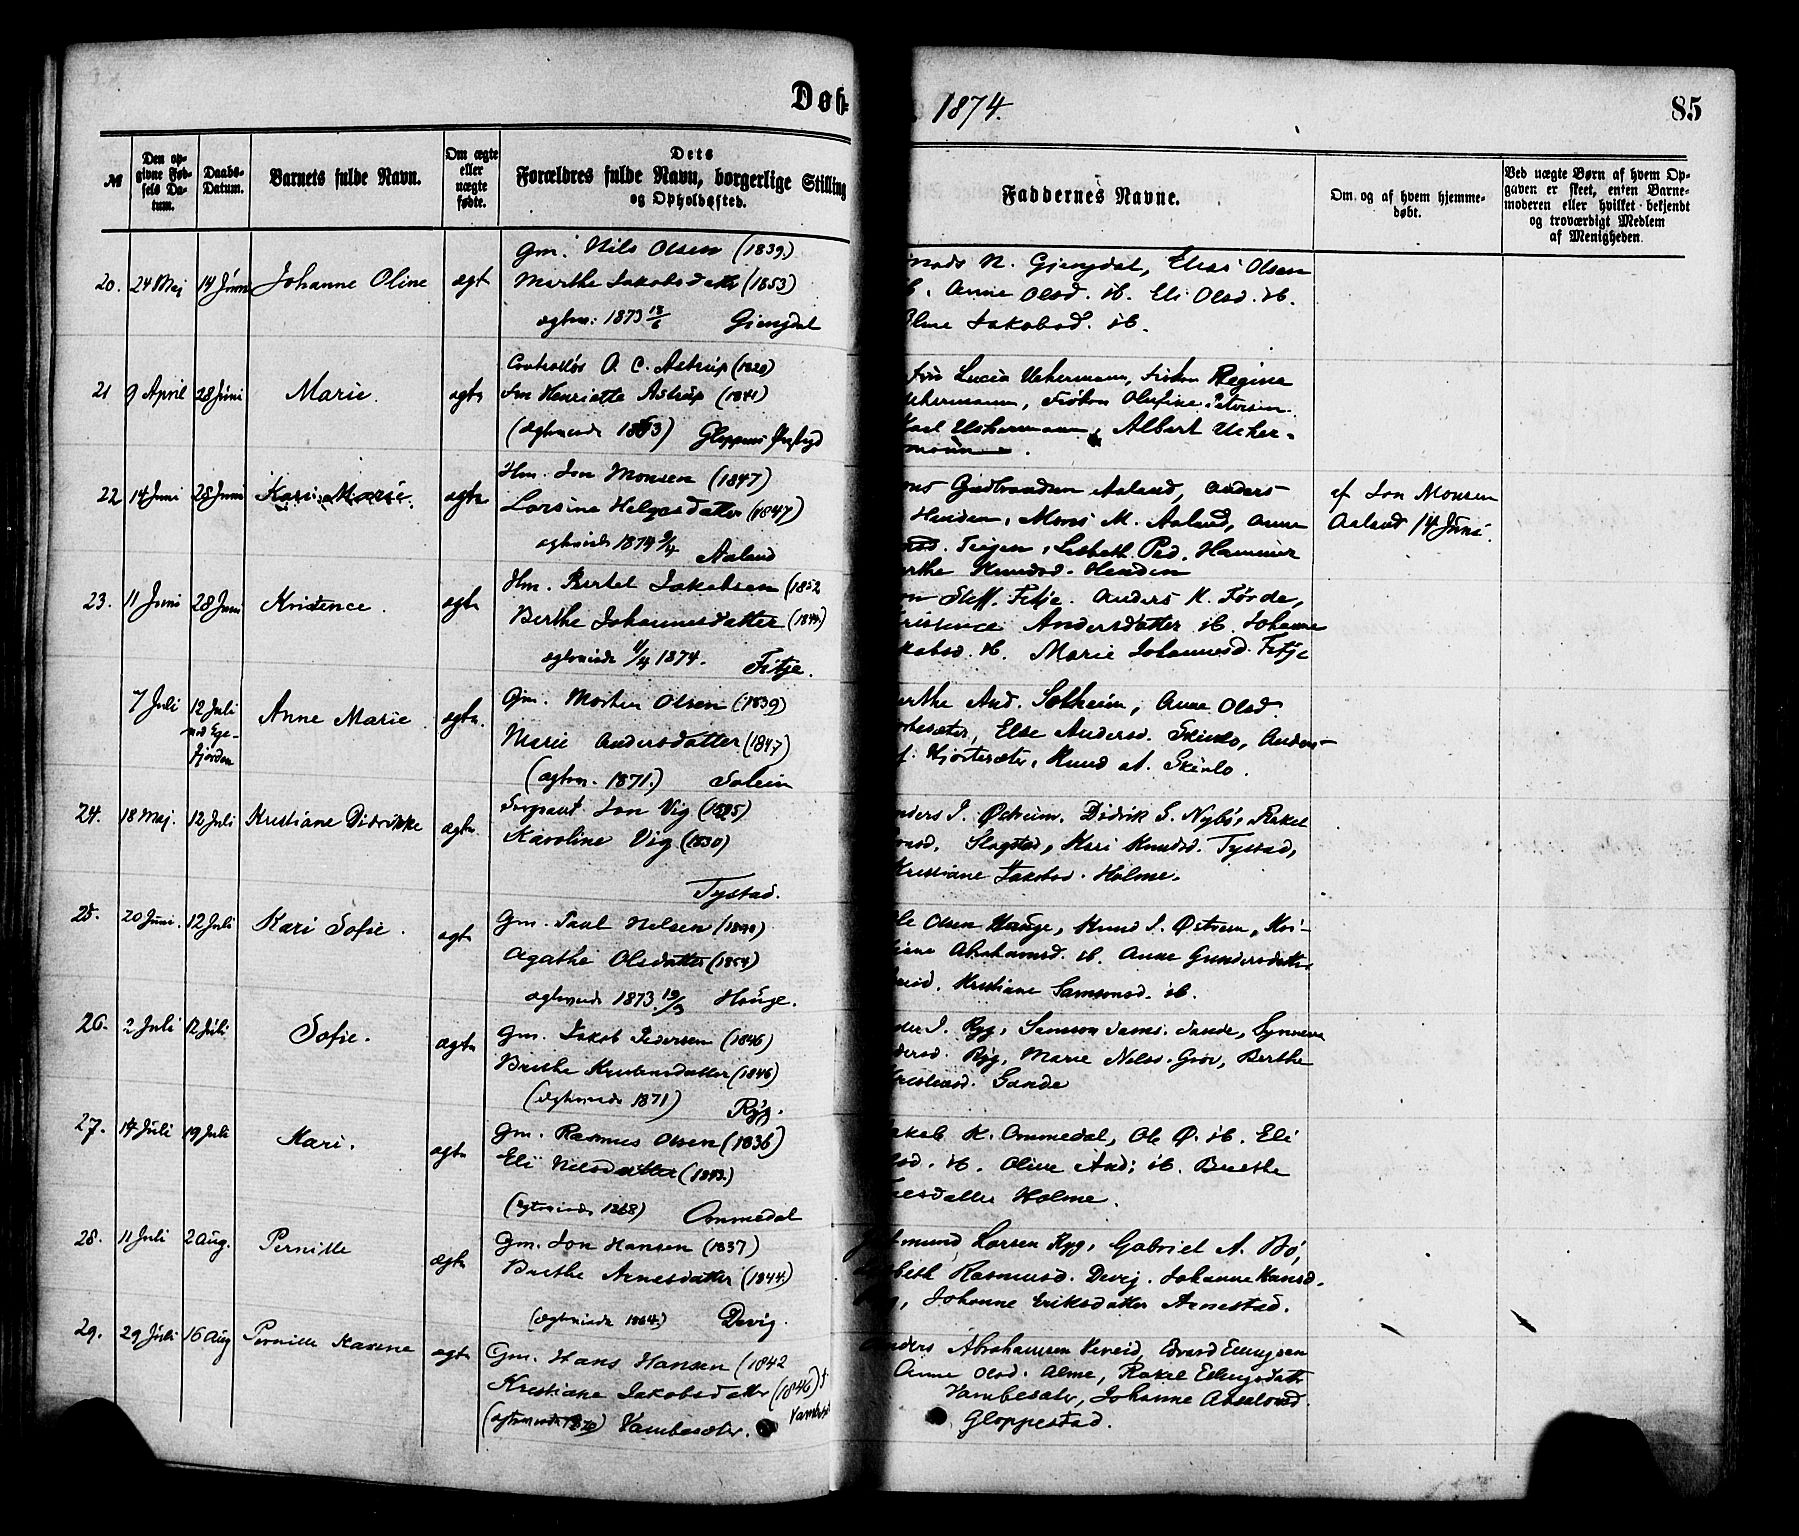 Døb-
1874.
85
№
Den op-
givne Fød-
sels Da-
tum.
Daabs-
Datum.
Barnets fulde Navn.
Om ægte
eller
uægte
fødte.
Dets
Forældres fulde Navn, borgerlige Stilling
og Opholdssted.
Faddernes Navne.
Om og af hvem hjemme-
døbt.
Ved uægte Børn af hvem Op-
gaven er skeet, enten Barne-
moderen eller hvilket bekjendt
og troværdigt Medlem
af Menigheden.
20. 24 Maj 14 Juni Johanne Oline ægt
Gm. Nils Olsen (1839)
Marthe Jakobsdatter (1853)
ægtev: 1873 Gjengdal
N. Gjengdal, Elias Olsen
Anne Olsd. ib. Eli Olsd. ib.
Oline Jakobsd. ib.
21 9 April 28 Juni Marie. ægte
O. C. Astrup
Henriette Astrup (1841)
Gloppens
Lucia Uchermann, Frøken Regine
Uchermann, Frøken Olufine Petersen
Karl Uchermann, Albert Ucher-
mann.
22 14 Juni 28 Juni Kari Marie. ægte
Hm. Jon Monsen (1847)
Larsine Helgesdatter (1847)
ægteviede 1874 9/4 Aaland
Gudbrandsen Aaland, Anders
Henden, Mons M. Aaland, Anne
Teigen, Lisbeth Ped. Hammer
Knudsd. Henden
af Jon Monsen
Aaland 14 Juni.
23. 11 Juni 28 Juni Kristence. ægte
Hm. Bertel Jakobsen (1852
Berthe Johannesdatter (1844)
ægteviede 4/4 1874. Fitje.
Steff. Fitje. Anders K. Førde,
Kristence Andersdatter ib. Johanne
Jakobsd. ib. Marie Johannesd. Fitje
7 Juli 12 Juli Anne Marie ægte.
Gm. Morten Olsen (1839)
Marie Andersdatter (1847)
(ægtev. 1871.) Solem
Berthe And. Solheim, Anne Olsd.
Else Andersd. Skinlo, Anders
Hjortesæter, Knud A. Skinlo.
24. 18 Maj. 12 Juli Kristiane Didrikke ægte.
Sergeant Jon Vig
Karoline Vig (1830)
Tystad.
Anders J. Didrik S. Nybø, Rakel
Slagstad, Kari Knudsd. Tystad,
Kristiane Jakobsd. Holme.
25. 20 Juni. 12 Juli Kari Sofie. ægte
Gm. Paul Nelsen
Agathe Olsdatter (1854)
ægteviede 1873 Hauge.
Ole Olsen Hauge, Knud J. Østrem, Kri-
stiane Abrahamsd. ib. Anne Gundersdatter
Kristiane Samsonsd. ib.
26. 2 Juli 12 Juli Sofie. ægte
Gm. Jakob Pedersen (1846)
Berthe Kristensdatter (1846)
(ægteviede 1871) Ryg.
Peder J. Ryg, Samson Sams. Sande, Synneva
Pedersd. Ryg, Marie Nilsd. Grov, Berthe
Kristensd. Sande
27. 14 Juli 19 Juli Kari. ægte
Gm. Rasmus Olsen (1836)
Eli Nilsdatter (1843)
(ægteviede 1868) Ommedal
Jakob K. Ommedal, Ole Ø. ib. Eli
Olsd. ib. Oline And: ib. Berthe
Holme.
28. 11 Juli 2 Aug. Pernille ægte
Gm. Jon Hansen (1837)
Berthe Arnesdatter (1844)
(ægteviede 1864.) Devig.
Larsen Ryg, Gabriel A. Bø,
Lisbeth Rasmusd. Devig. Johanne Hansd.
Johanne Eriksdatter Arnestad.
29. 29 Juli 16 Aug Pernille Karene ægte
Gm. Hans Hansen (1842
Kristiane Jakobsdatter (1846)
Vambesæter.
Anders Abrahamsen Vereid,
Anne Olsd. Alme, Rakel Ellingsdatter
Vambesæter, Johanne Absalonsd.
Gloppestad.